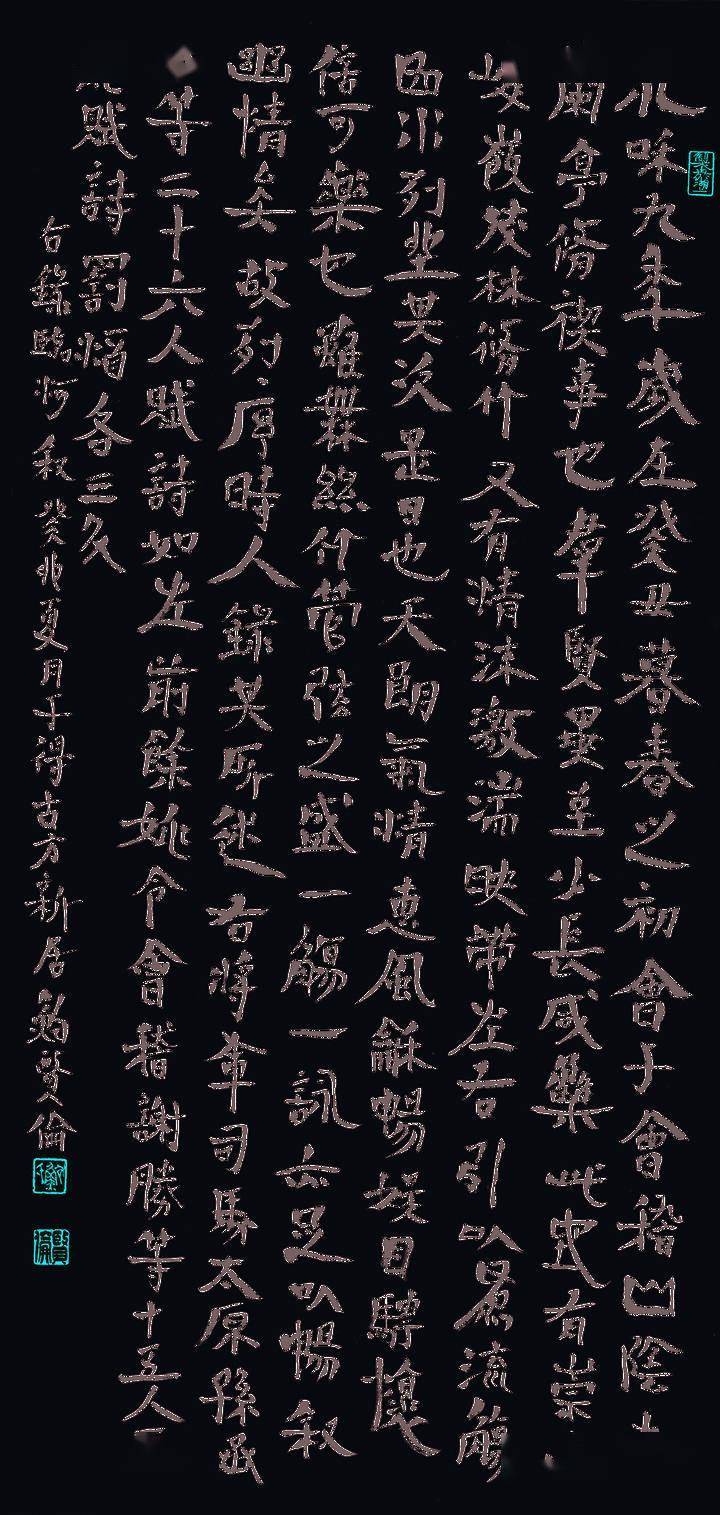 咊九年歲在癸丑暮春之初會于會稽山陰
蘭亭脩禊事也羣賢畢至少長咸集此地有崇
山峻茂林脩竹又有清流激湍映帶左右引以爲流觴
曲水列坐其次是日也天朗氣清惠風龢暢娛目騁懷
信可樂也雖無絲竹管弦之盛一觴一詠亦足以暢叙
幽情矣故列序時人錄其所述右將軍司馬太原孫丞
等二十六人賦詩如左前餘姚令會稽謝勝等十五人
賦詩罰酒各三
右錄臨河叙癸卯夏月于得古方新居賢倫